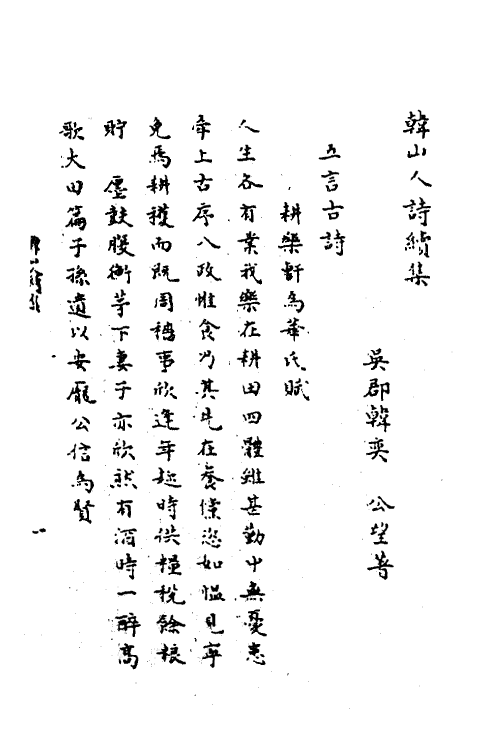 韓山人詩續集
吳郡韓奕 公望著
五言古詩
耕樂軒為華氏賦
人生各有業我樂在耕田四體雖甚勤中無憂患
牽上古序八政惟食乃其先在養儻恐如愠見寧
免焉耕穫而既周穡事欣逢年趁時供糧稅餘粮
貯 廛鼓腹衡茅下妻子亦欣然有酒時一醉高
歌大田篇子孫遺以安龐公信為賢
一